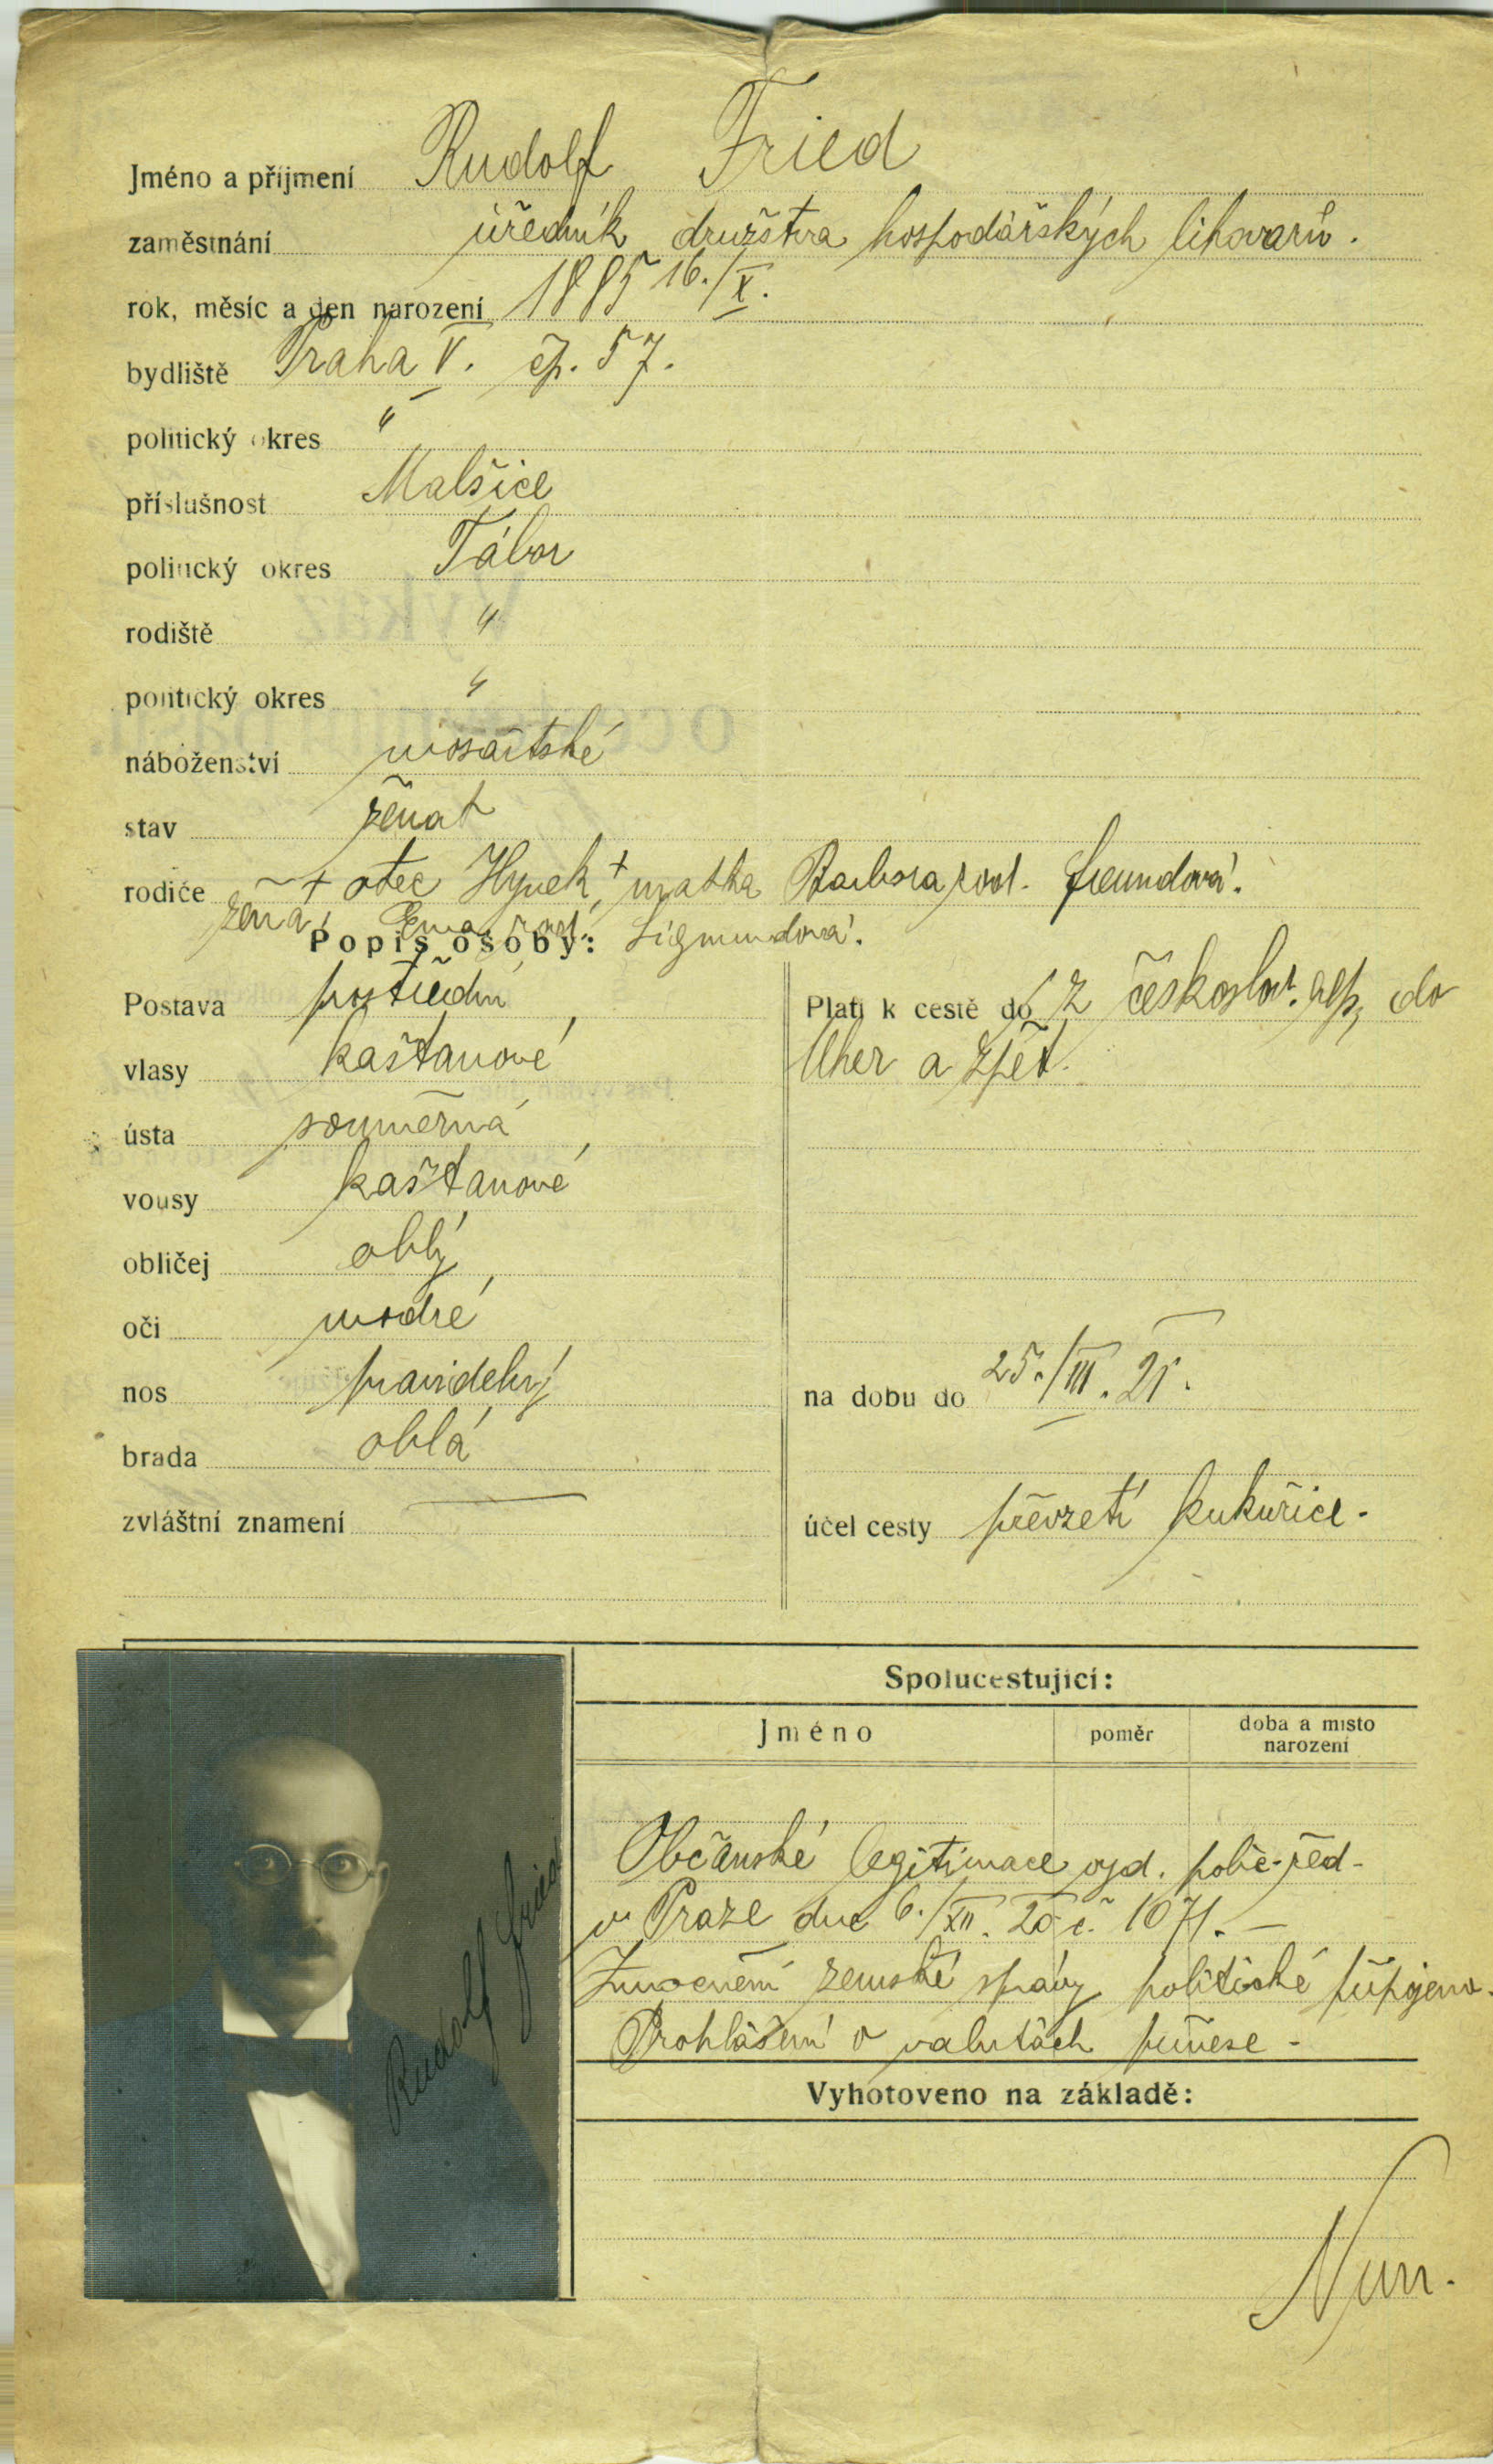 Jméno a příjmení Rudolf Fried
zaměstnání úředník družstva hospodářských lihovarů.
rok, měsíc a den narození 1885 16./X.
bydliště Praha V. čp. 57.
politický okres "
příslušnost Malšice
politický okres Tábor
rodiště "
politický okres "
náboženství mosaitské
stav ženat
rodiče + otec Hynek, + matka Barbora rod. Freundová.
žena Ema rod. Sigmundová.
Popis osoby:
Postava prostřední
vlasy kaštanové
ústa souměrná
vousy kaštanové
obličej oblý
oči modré
nos pravidelný
brada oblá
zvláštní znamení —
Platí k cestě do z českoslov. rep. do
Uher a zpět.
na dobu do 25./III. 21.
účel cesty převzetí kukuřice.
Spolucestující:
Jméno poměr doba a místo narození
Občanské legitimace vyd. polic. řed.
v Praze dne 6./XII. 20 č. 1071. —
Zmocnění zemské správy politické připojeno.
Prohlášení o valutách přinese -
Vyhotoveno na základě:
Rudolf Fried